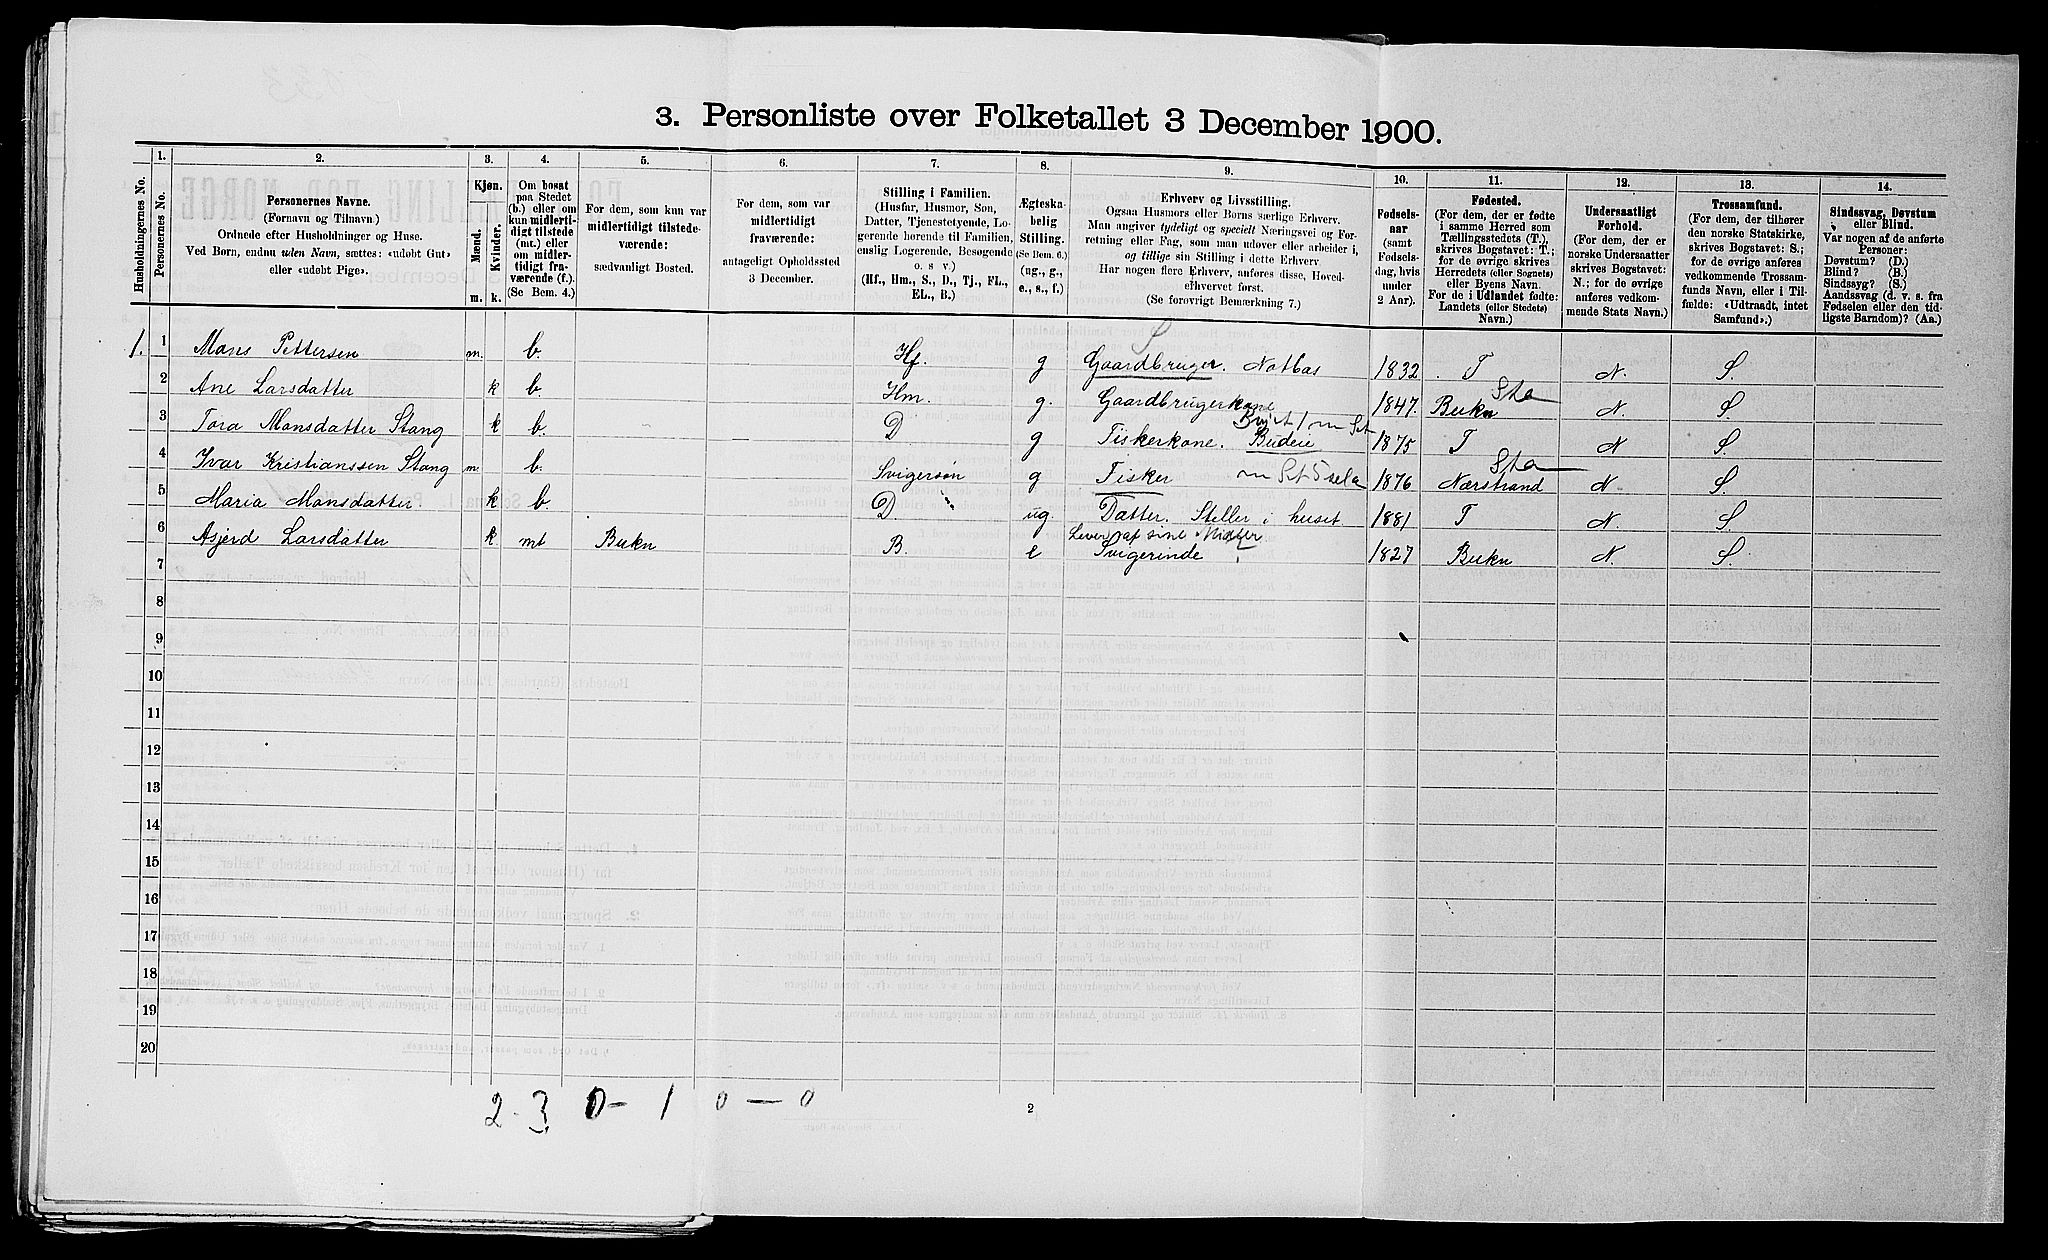 3. Personliste over Folketallet 3 December 1900.
Husholdningernes No.
1.
Personernes No.
2.
Personernes Navne.
(Fornavn og Tilnavn.)
Ordnede efter Husholdninger og Huse.
Ved Børn, endnu uden Navn, sættes: «udøbt Gut»
eller «udøbt Pige».
3.
Kjøn.
Mænd.
Kvinder.
m.
k.
4.
Om bosat
paa Stedet
(b.) eller om
kun midlerti-
digt tilstede
(mt.) eller
om midler-
tidigt fra-
værende (f.).
(Se Bem. 4.)
5.
For dem, som kun var
midlertidigt tilstede-
værende:
sædvanligt Bosted.
6.
For dem, som var
midlertidigt
fraværende:
antageligt Opholdssted
3 December.
7.
Stilling i Familien.
(Husfar, Husmor, Søn,
Datter, Tjenestetyende, Lo-
gerende hørende til Familien,
enslig Logerende, Besøgende
o. s v.)
(Hf., Hm., S., D., Tj., FL.,
EL., B.)
8.
Ægteska-
belig
Stilling.
(Se Bem. 6.)
(ug., g.,
e., s., f.)
9.
Erhverv og Livsstilling.
Ogsaa Husmors eller Børns særlige Erhverv.
Man angiver tydeligt og specielt Næringsvei og For-
retning eller Fag, som man udøver eller arbeider i,
og tillige sin Stilling i dette Erhverv
Har nogen flere Erhverv, anføres disse, Hoved-
erhvervet først.
(Se forøvrigt Bemærkning 7.)
10.
Fødsels-
aar
(samt
Fødsels-
dag, hvis
under
2 Aar).
11.
Fødested.
(For dem, der er fødte
i samme Herred som
Tællingsstedets (T.),
skrives Bogstavet: T.;
for de øvrige skrives
Herredets (eller Sognets)
eller Byens Navn.
For de i Udlandet fødte:
Landets (eller Stedets)
Navn.)
12.
Undersaatligt
Forhold.
(For dem, der er
norske Undersaatter
skrives Bogstavet:
N.; for de øvrige
anføres vedkom-
mende Stats Navn.)
13.
Trossamfund.
(For dem, der tilhører
den norske Statskirke,
skrives Bogstavet: S.;
for de øvrige anføres
vedkommende Trossam-
funds Navn, eller i Til-
fælde: «Udtraadt, intet
Samfund».)
14.
Sindssvag, Døvstum
eller Blind.
Var nogen af de anførte
Personer:
Døvstum? (D.)
Blind? (B.)
Sindssyg? (S.)
Aandssvag (d. v. s. fra
Fødselen eller den tid-
ligste Barndom)? (Aa.)
S
1. 1 Mons Pettersen m. b. Hf. g Gaardbruger. Notbas 1832 T N. S.
2 Ane Larsdatter k b. Hm. g. Gaardbrugerkone 1847. Bukn Sta N. S.
3 Tora Monsdatter Stang k b. D g Fiskerkone. Budeie 1875 T N S.
4 Ivar Kristianssen Stang m. b. Svigersøn g Fisker 1876 Nærstrand Sta N. S.
5 Maria Monsdatter. k b. D ug. Datter. Steller i huset 1881 T N. S
6 Asjerd Larsdatter k mt Bukn B. e Lever af sine Midler Svigerinde 1827 Bukn N. S.
7
8
9
10
11
12
13
14
15
16
17
18
19
20
2-3 0-1 0-0
2